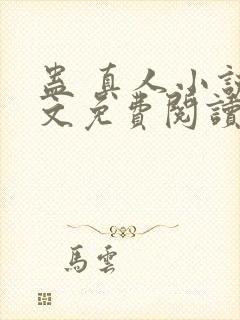 蛊真人小說
文免費閱讀
馬雲